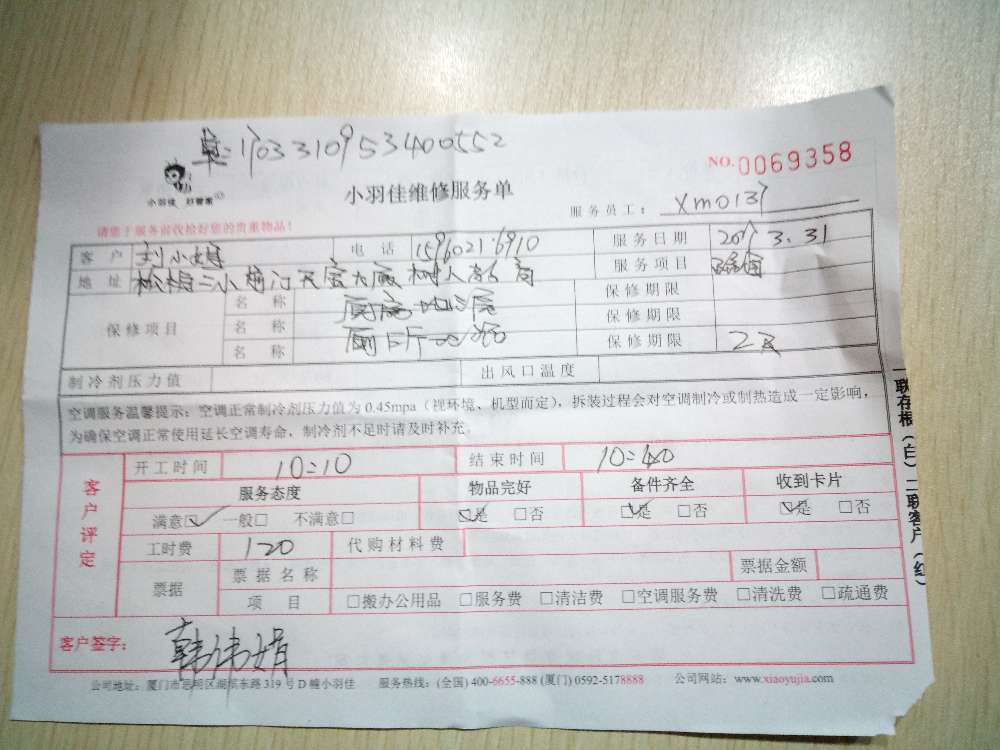 单:1703310953400552
NO.0069358
小羽佳 好管家
小羽佳维修服务单
服务员工: Xm0137
请您于服务前收拾好您的贵重物品!
客户 刘小姐 电话 服务日期 2017 3.31
地址 服务项目
保修项目 名称 厨房地漏 保修期限
名称 保修期限
名称 厕所地漏 保修期限 2天
制冷剂压力值 出风口温度
空调服务温馨提示:空调正常制冷剂压力值为0.45mpa(视环境、机型而定),拆装过程会对空调制冷或制热造成一定影响,
为确保空调正常使用延长空调寿命,制冷剂不足时请及时补充。
客户评定
开工时间 10:10 结束时间 10:40
服务态度 物品完好 备件齐全 收到卡片
满意☑ 一般□ 不满意□ ☑是 □否 ☑是 □否 ☑是 □否
工时费 120 代购材料费
票据 票据名称 票据金额
项目 □搬办公用品 □服务费 □清洁费 □空调服务费 □清洗费 □疏通费
客户签字: 韩伟娟
公司地址:厦门市思明区湖滨东路319号D幢小羽佳 服务热线:(全国)400-6655-888 (厦门)0592-5178888 公司网站:www.xiaoyujia.com
一联存根(白)二联客户(红)